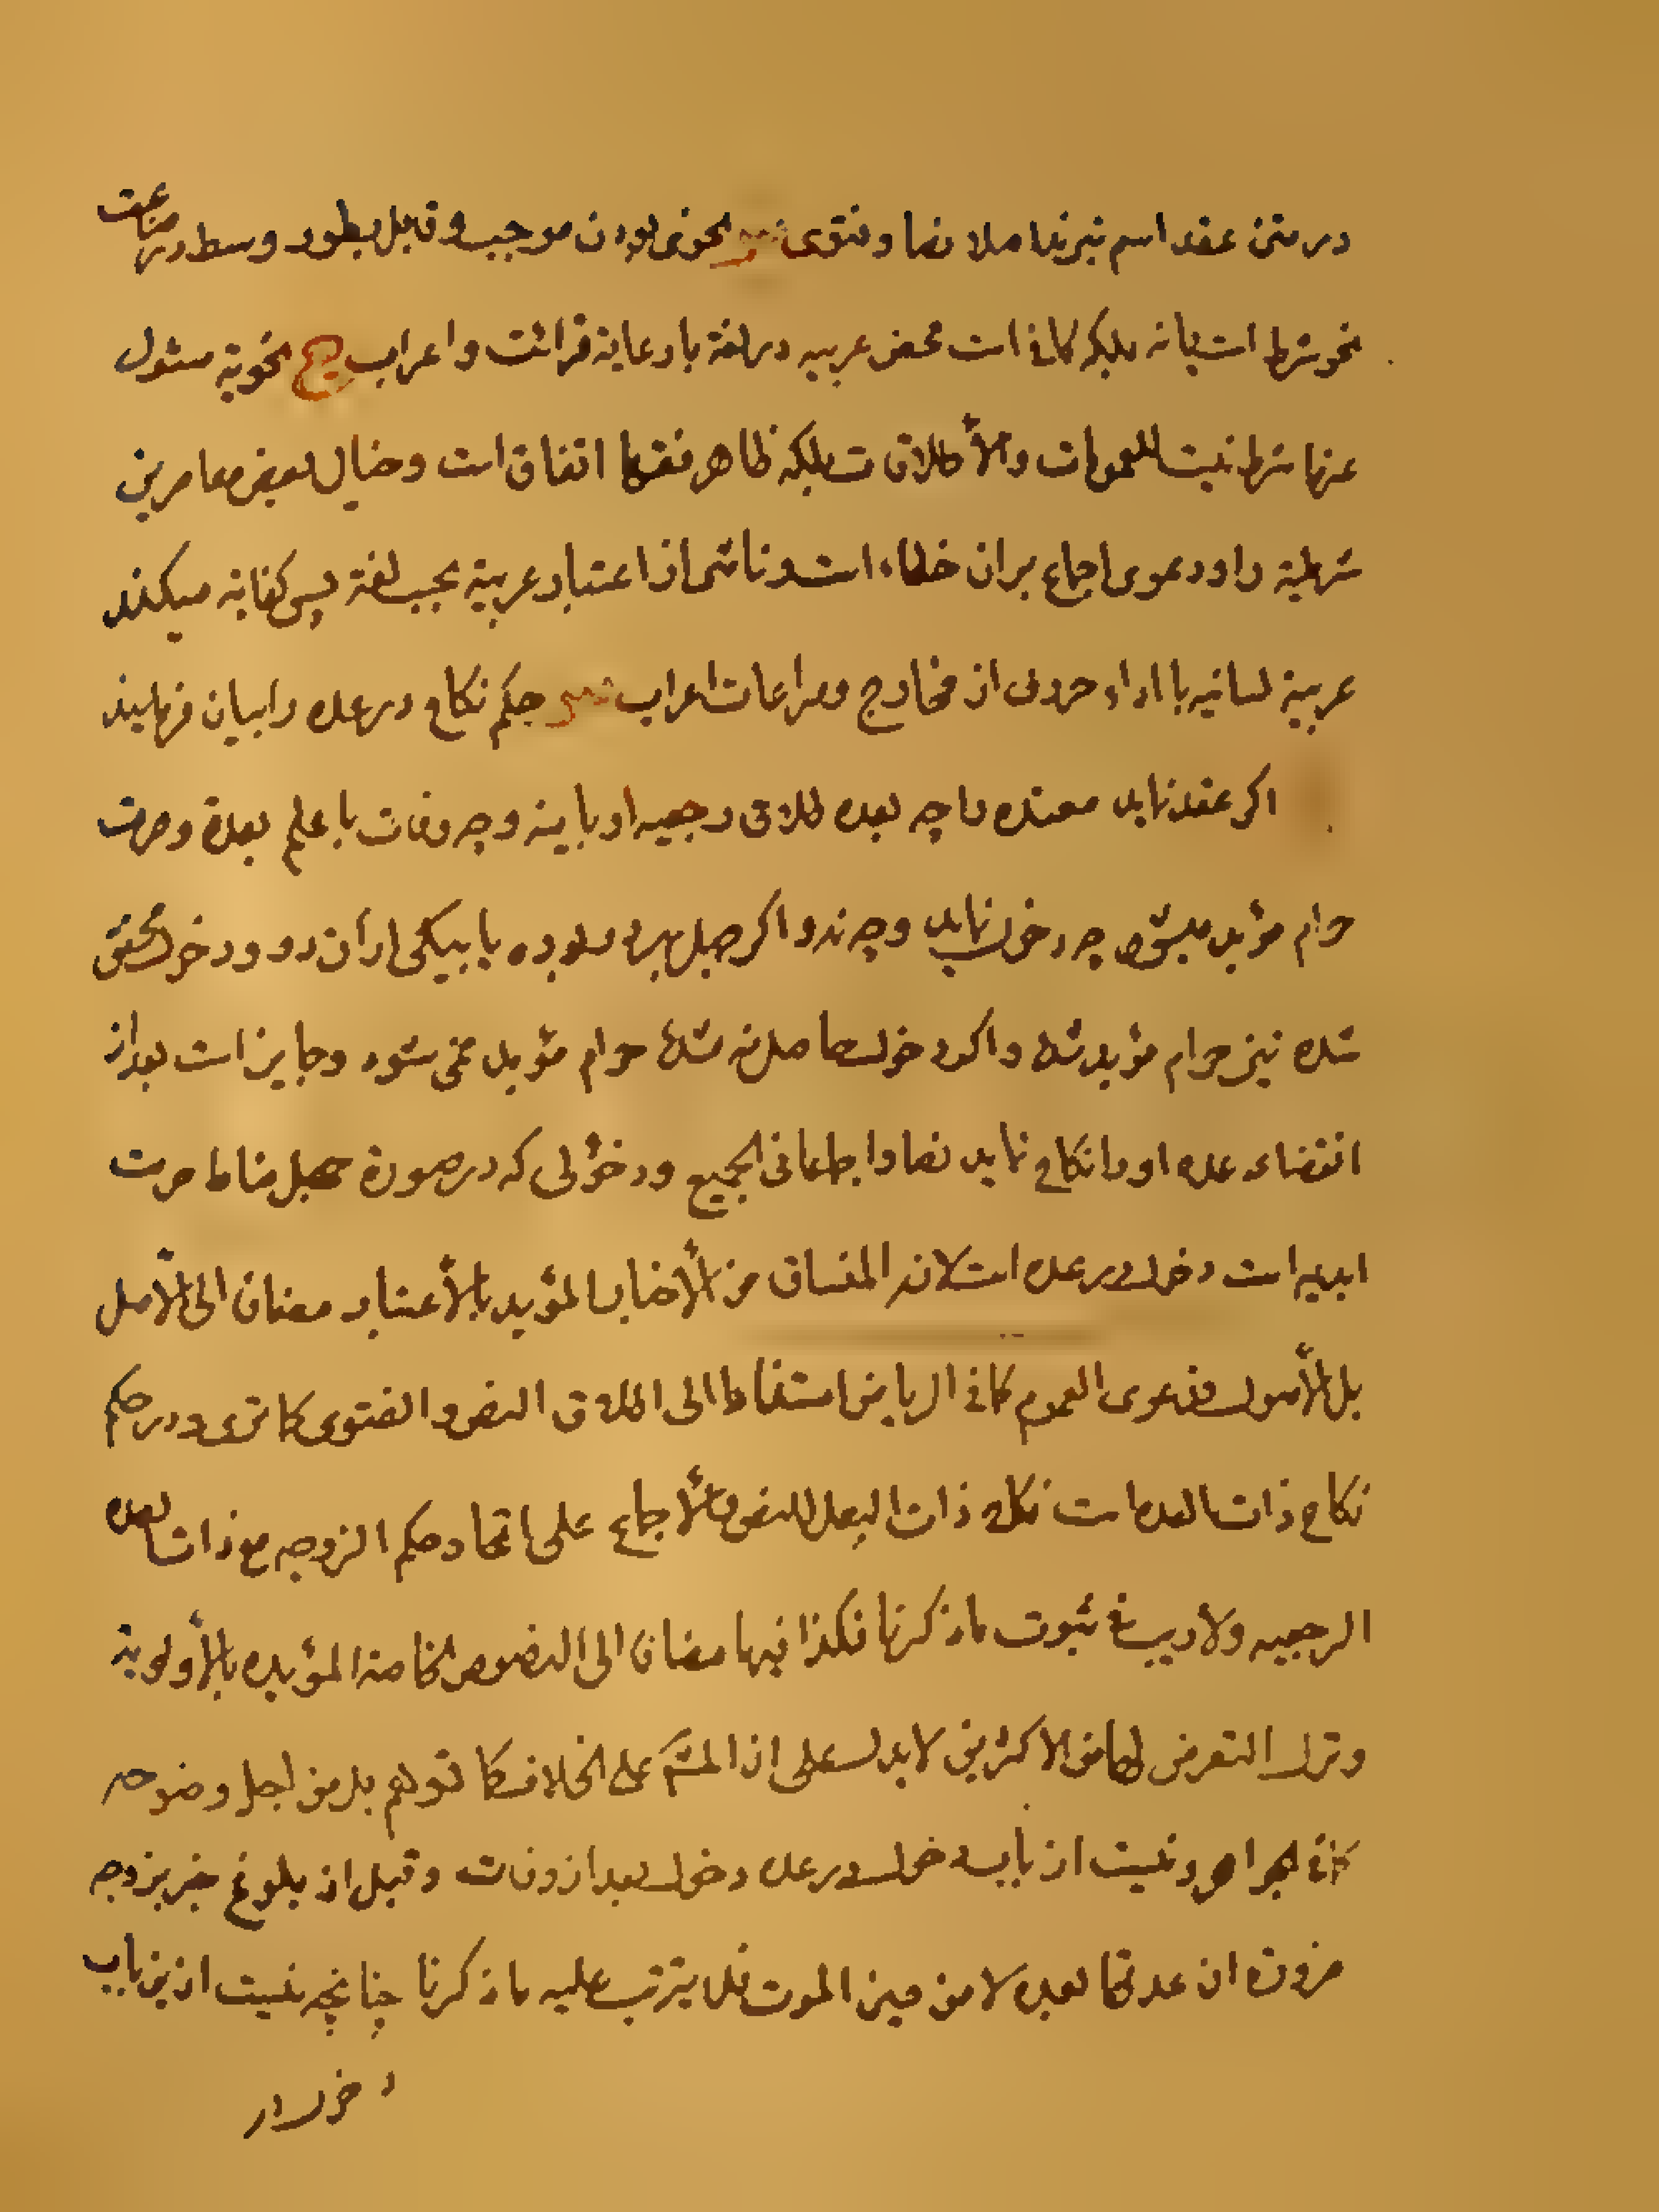 در متن عقد اسم نبرند اصلا نصا و فتوی نحوی بودن موجب و قابل بطور وسط در مراعات
نحو شرط است یا نه بلکه کافی است محض عربیه در لغة با رعایة قرائت و اعراب نحویة مسئول
عنها شرط نیست للعمومات والأطلاقات بلکه ظاهر فقها اتفاق است و خیال بعض معاصرین
شرطیة را و دعوی اجماع بران خطاء است و ناشی از اعتبار عربیة بحسب لغة پس کفایة میکند
عربیة لسانیه با اداء حروف از مخارج و مراعات اعراب حکم نکاح در عده را بیان فرمایند
اکر عقد نماید معتده را چه بعده طلاق رجعیه او باینه و چه وفات با علم بعدة و حرمت
حرام مؤبد میشود چه دخول نماید و چه نه و اکر جهل بهر دو بوده یا بیکی از آن دو و دخول محقق
شده نیز حرام مؤبد شده و اکر دخول حاصل نه شده حرام مؤبد نمی شود و جایز است بعد از
انقضاء عده او را نکاح نماید نصا و اجماعا فی الجمیع و دخولی که در صورة جهل مناط حرمت
ابدیه است دخول در عده است لانه المنساق من الأخبار المؤید بالأعتبار مضافا الی الأصل
بل الأصول فدعوی العموم کما فی الریاض استنادا الی اطلاق النص و الفتوی کما تری و در حکم
نکاح ذات العده است نکاح ذات البعل للنص والأجماع علی اتحاد حکم الزوجه مع ذات العده
الرجعیه ولا ریب فی ثبوت ما ذکرنا فکذا فیها مضافا الی النصوص الخاصة المؤیده بالأولویة
وترک التعرض لها من الاکثرین لا یدل علی ان المسئلة علی الخلاف کما توهم بل من اجل وضوحه
کما فی الجواهر و نیست از باب دخول در عده دخول بعد از وفات و قبل از بلوغ خبر بزوجه
ضرورة ان عدتها بعده لا من حین الموت فلا یترتب علیه ما ذکرنا چنانچه نیست ازین باب
دخول در